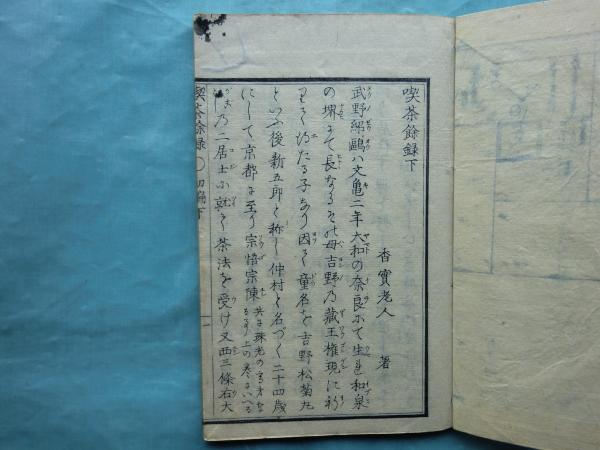 喫茶餘録下
香實老人 著
武野紹鷗ハ文亀二年大和の奈良にて生れ和泉
の堺にて長なるその母吉野乃藏王権現に祈
りて得たる子なり因て童名を吉野松菊丸
といふ後新五郎と称し仲村と名づく二十四歳
にして京都に至り宗悟宗陳
共に珠光の
上の巻にいへる
乃二居士に就て茶法を受け又西三條右大
喫茶餘録 初編下